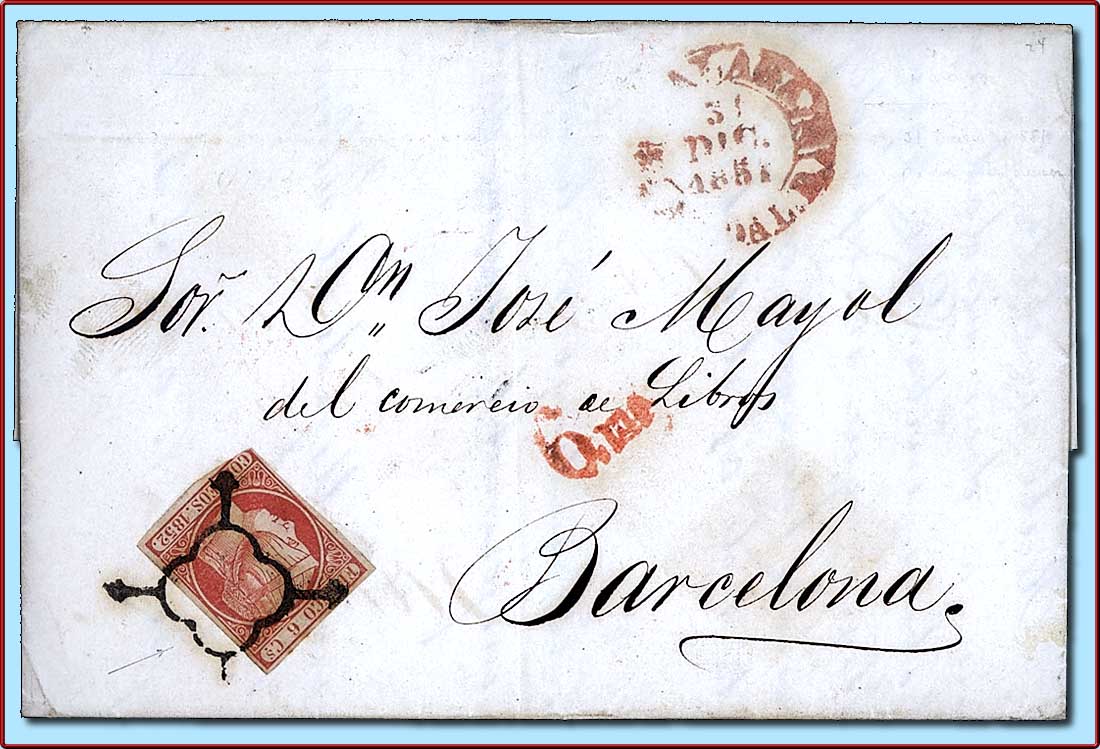 24
31
DIC.
1851
Sor. Dn José Mayol
del comercio de Libros
Barcelona.
CORREOS. 1852.
FRANCO 6 Cs